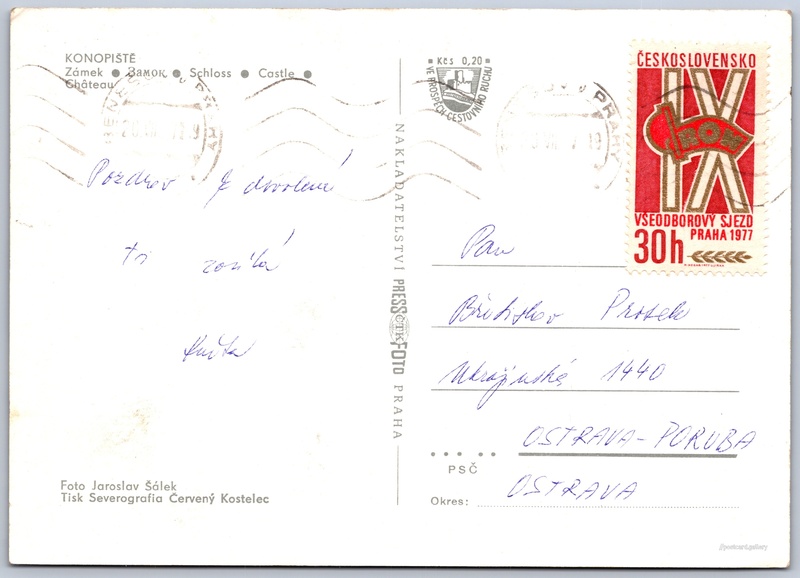 KONOPIŠTĚ
Zámek ● Замок ● Schloss ● Castle ●
Château
Pozdrav z dovolené
Ti
Kčs 0,20
VE PROSPĚCH CESTOVNÍHO RUCHU
NAKLADATELSTVÍ PRESSFOTO PRAHA
ČTK
ČESKOSLOVENSKO
IX
ROH
VŠEODBOROVÝ SJEZD
PRAHA 1977
30h
Pan
Břetislav Prosek
Ukrajinská 1440
OSTRAVA-PORUBA
PSČ
Okres: OSTRAVA
Foto Jaroslav Šálek
Tisk Severografia Červený Kostelec